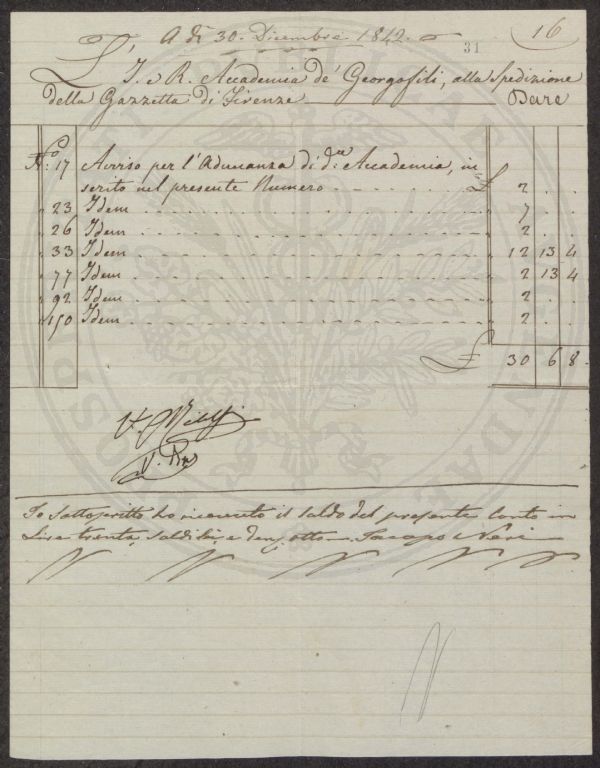 A dì 30. Dicembre 1842.
16
31
L'I. e R. Accademia de' Georgofili, alla Spedizione
della Gazzetta di Firenze Dare
N.º 17 Avviso per l'Adunanza di d.ta Accademia, in
serito nel presente Numero £ 2 . .
" 23 Idem 7 . .
" 26 Idem 2 . .
" 33 Idem 12 13 4
" 77 Idem 2 13 4
" 92 Idem 2 . .
" 150 Idem 2 . .
£ 30 6 8
Io sottoscritto ho ricevuto il saldo del presente Conto in
Lire trenta, soldi sei, e denj otto Jacopo Neri